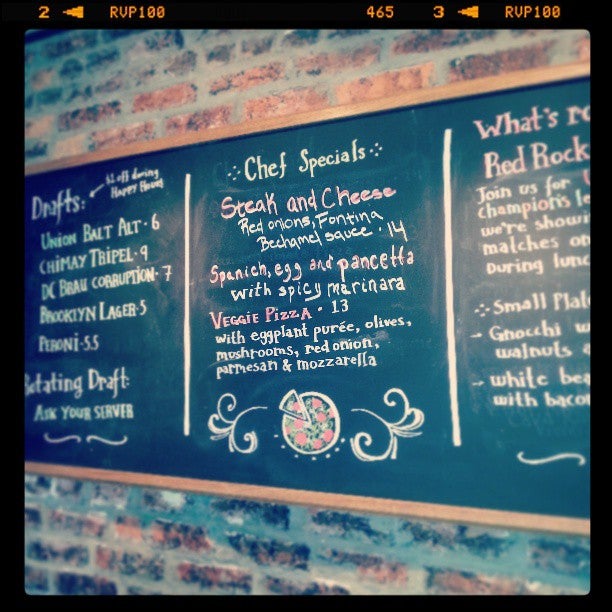 2 RVP100 465 3 RVP100
Drafts:
$1 off during
Happy Hour!
Union Balt Alt · 6
Chimay Tripel · 9
DC Brau Corruption · 7
Brooklyn Lager · 5
Peroni · 5.5
Rotating Draft:
Ask Your Server
Chef Specials
Steak and Cheese
Red onions, Fontina
Bechamel sauce · 14
Spanich, egg and pancetta
with spicy marinara
Veggie Pizza · 13
with eggplant purée, olives,
mushrooms, red onion,
parmesan & mozzarella
What's
Red Rock
Join us for
champions
we're
matches
During
Small
- Gnocchi
walnuts
- white
with